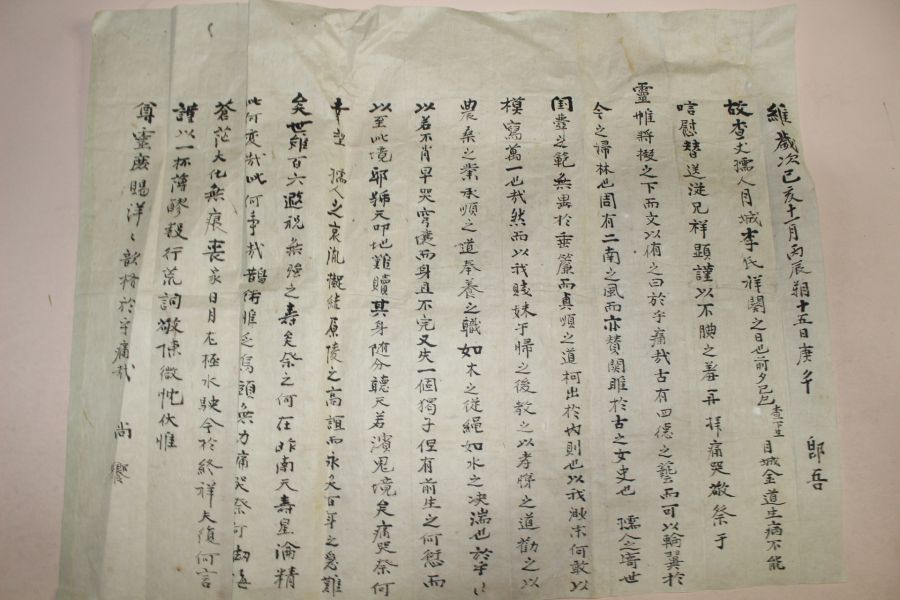 維歲次己亥十一月丙辰朔十五日庚午 卽吾
故查丈孺人月城李氏祥闋之日也前夕己巳查下生月城金道生病不能
唁慰替送從兄祥顯謹以不腆之羞再拜痛哭敬祭于
靈帷將撤之下而文以侑之曰於乎痛哉古有四德之藝而可以輪翼於
今之婦林也周有二南之風而亦贊關雎於古之女史也 孺人之 世
閨壼之範無異於垂簾而真順之道柯出於內則也以我 末何敢以
模寫萬一也哉然而以我賤妹于歸之後教之以孝悌之道勸之以
農桑之業承順之道奉養之職如木之從繩如水之决湍也於乎〻
以若不肖早哭穹 而身且不完又失一個獨子但有前生之何愆而
以至此境耶號天叩地難贖其身隨分聽天若濱鬼境矣痛哭祭何
 孺人之哀胤凝結原陵之高誼而永久百年之 難
矣世雖百六遐祝無彊之壽矣祭之何在昨南天壽星淪精
此何變哉此何事哉鵲術惟乏烏頭無力痛哭祭何
蒼茫大化無痕喪家日月在極水駛今於終祥夫復何言
謹以一杯薄醪殽行荒詞敬陳微忱伏惟
尊靈庶賜洋〻歆格於乎痛哉 尚饗